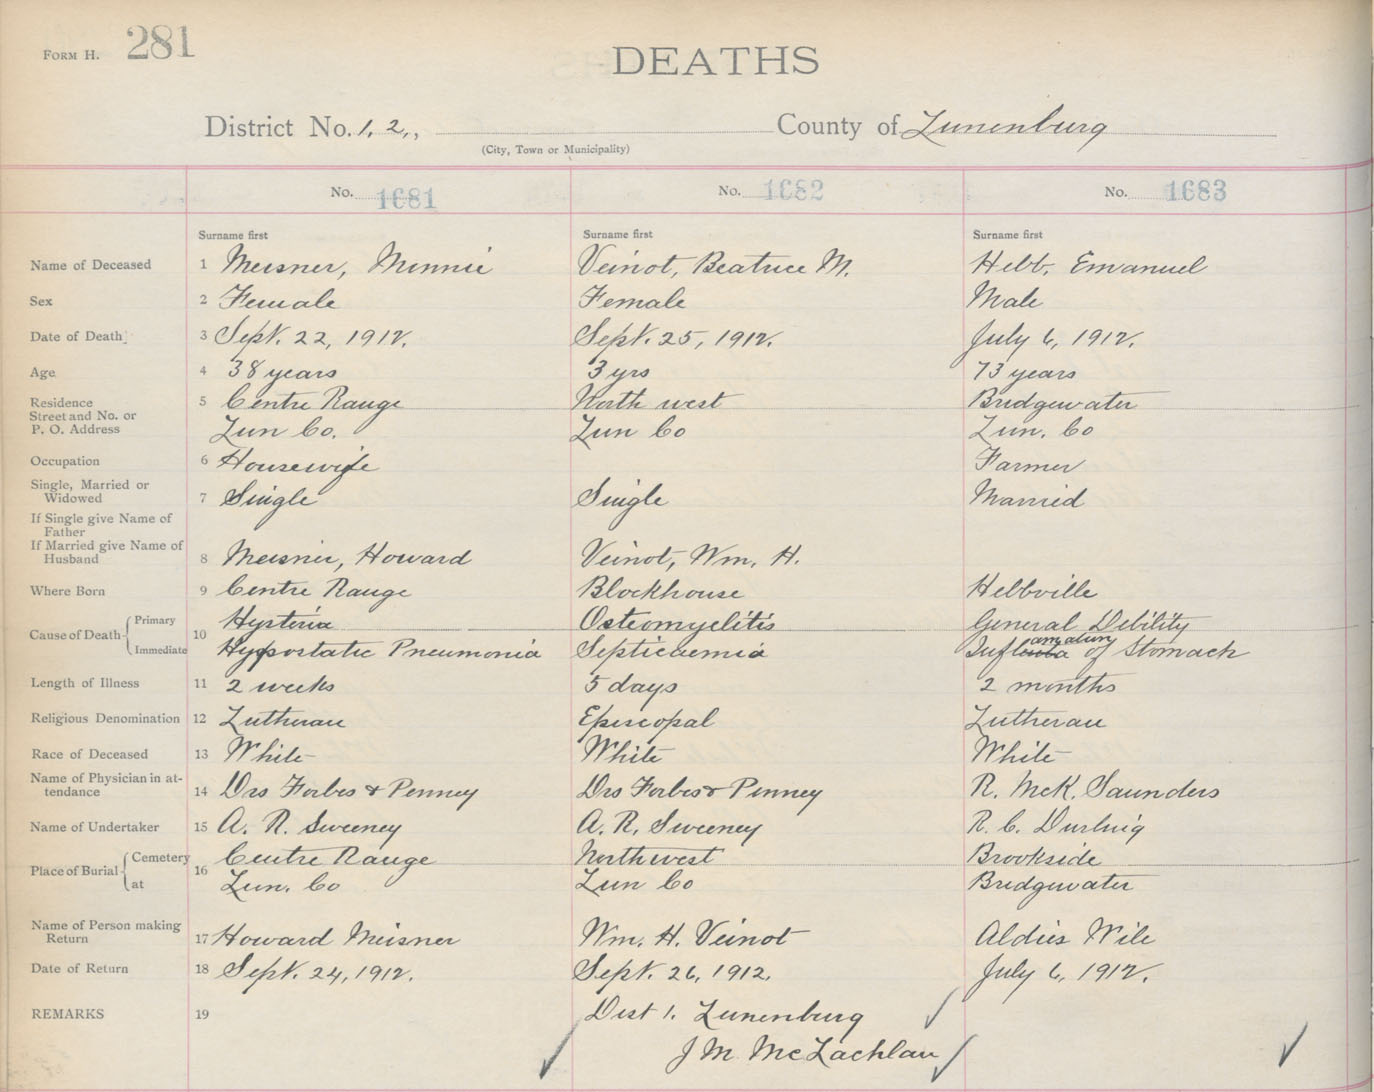 FORM H. 281
DEATHS
District No. 1, 2,, County of Lunenburg
(City, Town or Municipality)
No. 1681 No. 1682 No. 1683
Surname first Surname first Surname first
Name of Deceased 1 Meisner, Minnie Veinot, Beatrice M. Hebb, Emanuel
Sex 2 Female Female Male
Date of Death 3 Sept. 22, 1912. Sept. 25, 1912. July 6, 1912.
Age 4 38 years 3 yrs 73 years
Residence 5 Centre Range North west Bridgewater
Street and No. or
P. O. Address Lun Co. Lun Co Lun. Co
Occupation 6 Housewife Farmer
Single, Married or
Widowed 7 Single Single Married
If Single give Name of
Father
If Married give Name of
Husband 8 Meisner, Howard Veinot, Wm. H.
Where Born 9 Centre Range Blockhouse Hebbville
Cause of Death Primary 10 Hysteria Osteomyelitis General Debility
Immediate Hypostatic Pneumonia Septicaemia Inflamatury of Stomach
Length of Illness 11 2 weeks 5 days 2 months
Religious Denomination 12 Lutheran Episcopal Lutheran
Race of Deceased 13 White White White
Name of Physician in at-
tendance 14 Drs Forbes & Penney Drs Forbes & Penney R. McK. Saunders
Name of Undertaker 15 A. R. Sweeney A. R. Sweeney R. C. Durling
Place of Burial Cemetery 16 Centre Range Northwest Brookside
at Lun. Co Lun Co Bridgewater
Name of Person making
Return 17 Howard Meisner Wm. H. Veinot Aldies Wile
Date of Return 18 Sept. 24, 1912. Sept. 26, 1912. July 6, 1912.
REMARKS 19 Dist 1. Lunenburg
J M McLachlan